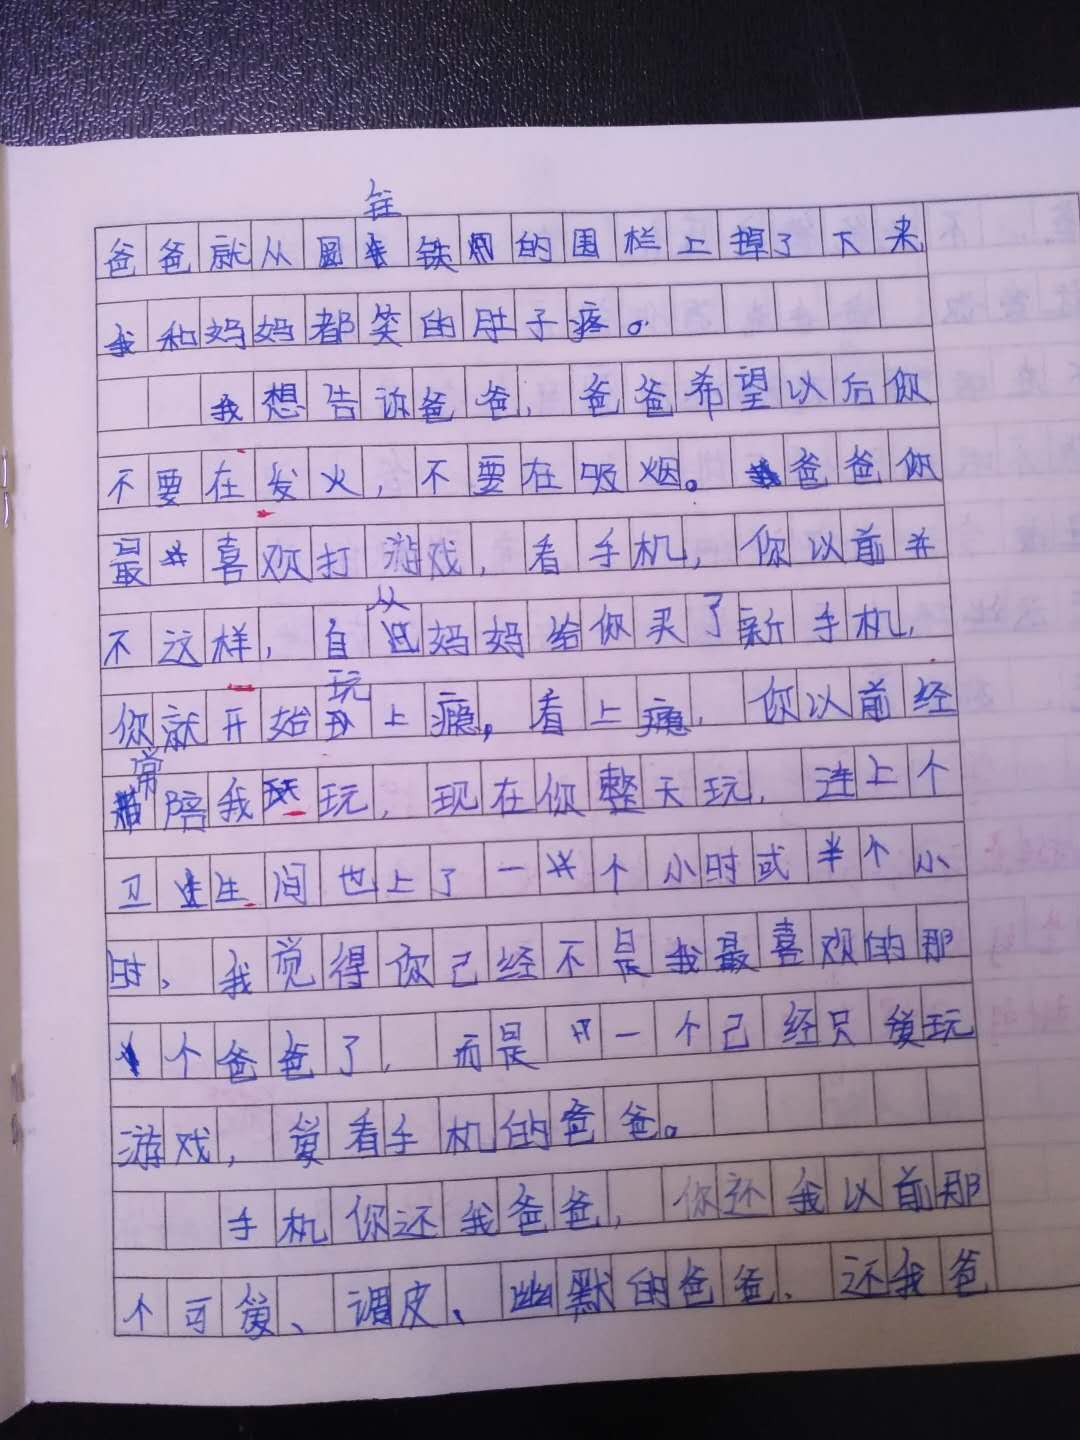 爸爸就从圆柱铁的围栏上掉了下来
我和妈妈都笑的肚子疼。
我想告诉爸爸，爸爸希望以后你
不要在发火，不要在吸烟。爸爸你
最喜欢打游戏，看手机，你以前并
不这样，自从妈妈给你买了新手机，
你就开始玩上瘾，看上瘾，你以前经
常陪我玩，现在你整天玩，连上个
卫生间也上了一个小时或半个小
时、我觉得你己经不是我最喜欢的那
个爸爸了，而是一个己经只爱玩
游戏，爱看手机的爸爸。
手机你还我爸爸，你还我以前那
个可爱、调皮、幽默的爸爸、还我爸